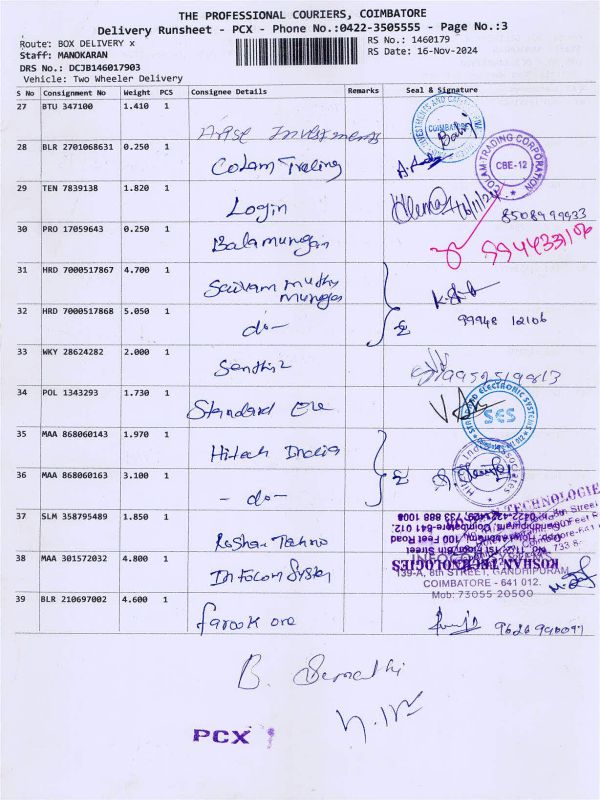 THE PROFESSIONAL COURIERS, COIMBATORE
Delivery Runsheet - PCX - Phone No.:0422-3505555 - Page No.:3
Route: BOX DELIVERY x
RS No.: 1460179
Staff: MANOKARAN
RS Date: 16-Nov-2024
DRS No.: DCJB146017903
Vehicle: Two Wheeler Delivery
S No Consignment No Weight PCS Consignee Details Remarks Seal & Signature
27 BTU 347100 1.410 1 Arise Investments
28 BLR 2701068631 0.250 1 Colam Trading
COLAM TRADING CORPORATION CBE-12
29 TEN 7839138 1.820 1 Login 16/11/24 8508999933
30 PRO 17059643 0.250 1 Balamurugan 9944339106
31 HRD 7000517867 4.700 1 Muthu
Murugan
32 HRD 7000517868 5.050 1 - do - 99948 12106
33 WKY 28624282 2.000 1 Senthil
34 POL 1343293 1.730 1 Standard Ele
ELECTRONIC SYSTEMS SES
35 MAA 868060143 1.970 1 Hitech India
36 MAA 868060163 3.100 1 - do -
37 SLM 358795489 1.850 1 Roshan Techno
ROSHAN TECHNOLOGIES
38 MAA 301572032 4.800 1 Infocom System
139-A, 8th STREET, GANDHIPURAM
COIMBATORE - 641 012.
Mob: 73055 20500
39 BLR 210697002 4.600 1 farook
PCX